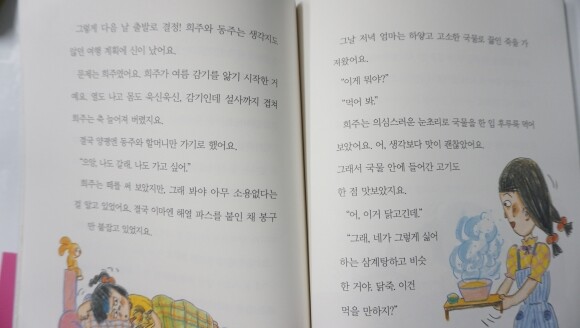 그렇게 다음 날 출발로 결정! 희주와 동주는 생각지도
않던 여행 계획에 신이 났어요.
문제는 희주였어요. 희주가 여름 감기를 앓기 시작한 거
예요. 열도 나고 몸도 욱신욱신, 감기인데 설사까지 겹쳐
희주는 축 늘어져 버렸지요.
결국 양평엔 동주와 할머니만 가기로 했어요.
"으앙, 나도 갈래. 나도 가고 싶어."
희주는 떼를 써 보았지만, 그래 봐야 아무 소용없다는
걸 알고 있었어요. 결국 이마엔 해열 파스를 붙인 채 봉구
만 붙잡고 있었지요.
그날 저녁 엄마는 하얗고 고소한 국물로 끓인 죽을 가
져왔어요.
"이게 뭐야?"
"먹어 봐."
희주는 의심스러운 눈초리로 국물을 한 입 후루룩 먹어
보았어요. 어, 생각보다 맛이 괜찮았어요.
그래서 국물 안에 들어간 고기도
한 점 맛보았지요.
"어, 이거 닭고긴데."
"그래, 네가 그렇게 싫어
하는 삼계탕하고 비슷
한 거야. 닭죽. 이건
먹을 만하지?"